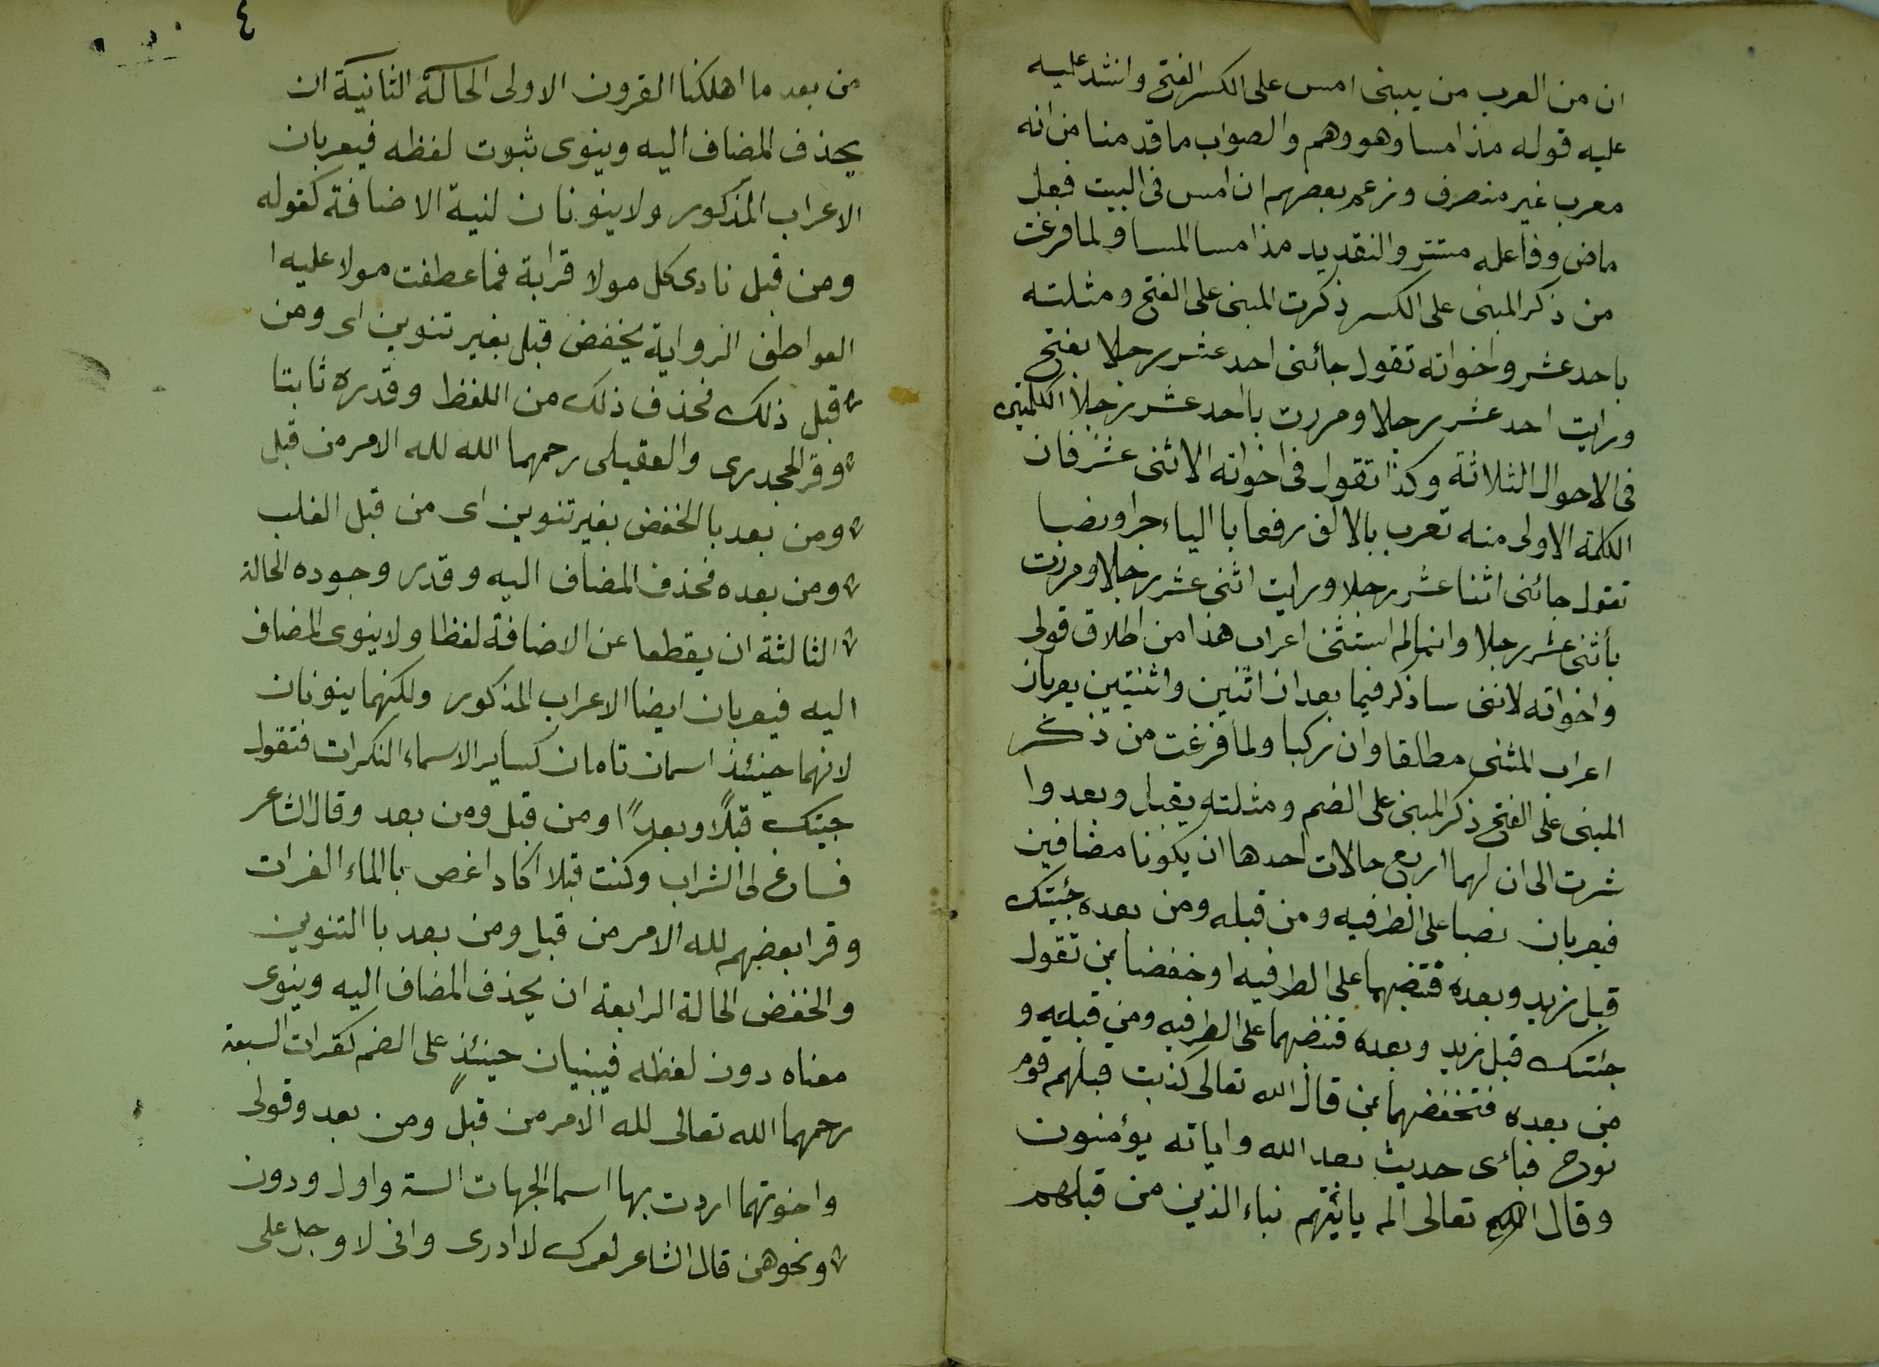 ان من العرب من يبنى امس على الكسر الفتح وانشد عليه
عليه قوله مذ امسا وهو وهم والصواب ما قدمنا من انه
معرب غير منصرف وزعم بعضهم ان امس فى البيت فعل
ماض وفاعله مستتر والتقديد مذ امسا المسا ولما فرغت
من ذكر المبنى على الكسر ذكرت المبنى على الفتح ومثلته
باحد عشر واخواته تقول جائنى احد عشر رجلا بفتح
ورايت احد عشر رجلا ومررت باحد عشر رجلا الكلمتين
فى الاحوال الثلاثة وكذا تقول فى اخواته الا اثنى عشر فان
الكلمة الاولى منه تعرب بالالف رفعا با الياء جرا ونصبا
تقول جائنى اثنا عشر رجلا ورايت اثنى عشر رجلا ومررت
بأثنى عشر رجلا وانما لم استثنى اعراب هذا من اطلاق قولى
واخواته لاننى ساذكر فيما بعد ان اثنين واثنتين يعربان
اعراب المثنى مطلقا وان ركبا ولما فرغت من ذكر
المبنى على الفتح ذكر المبنى على الضم ومثلته بقبل وبعد وا
شرت الى ان لهما اربع حالات احدها ان يكونا مضافين
فيعربان نصبا على الظرفيه ومن قبله ومن بعده جئتك
قبل زيد وبعده فتنصبهما على الظرفيه او خفضا بمن تقول
جئتك قبل زيد وبعده فتنصبهما على الظرفيه ومن قبله و
من بعده فتخفضهما بمن قال الله تعالى كذبت قبلهم قوم
نوح فبأى حديث بعد الله واياته يؤمنون
وقال الله تعالى الم ياتيهم نباء الذين من قبلهم
٤
من بعد ما اهلكنا القرون الاولى الحالة الثانية ان
يحذف المضاف اليه وينوى ثبوت لفظه فيعربان
الاعراب المذكور ولا ينونان لنية الاضافة كقوله
ومن قبل نادى كل مولا قرابة فما عطفت مولا عليه ا
العواطف الرواية بخفض قبل بغير تنوين اى ومن
قبل ذلك فحذف ذلك من اللفظ وقدره ثابتا
وقر الجحدرى والعقيلى رحمهما الله لله الامر من قبل
ومن بعد بالخفض بغير تنوين اى من قبل الغلب
ومن بعده فحذف المضاف اليه وقدر وجوده الحالة
الثالثة ان يقطعا عن الاضافة لفظا ولا ينوى المضاف
اليه فيعربان ايضا الاعراب المذكور ولكنهما ينونان
لانهما حينئذ اسمان تامان كساير الاسماء النكرات فتقول
جيتك قبلًا وبعدًا ومن قبل ومن بعد وقال الشاعر
فساغ لى الشراب وكنت قبلا اكاد اغص بالماء الفرات
وقرا بعضهم لله الامر من قبل ومن بعد با التنوين
والخفض الحالة الرابعة ان يحذف المضاف اليه وينوى
معناه دون لفظه فيبنيان حينئذٍ على الضم كقرات السبعة
رحمهما الله تعالى لله الامر من قبل ومن بعد وقولى
واخوتهما اردت بها اسما الجهات الستة واول ودون
ونحوهن قال الشاعر لعمرك لا ادرى وانى لا وجل على